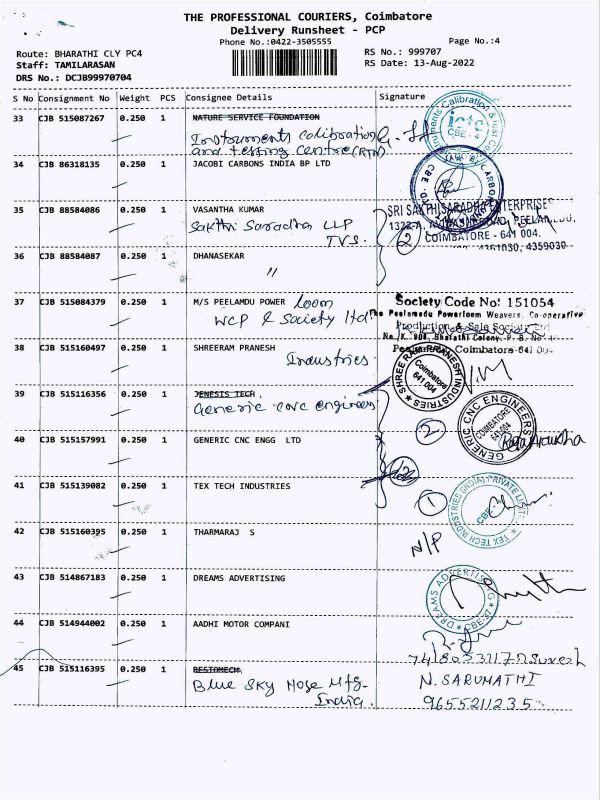 THE PROFESSIONAL COURIERS, Coimbatore
Delivery Runsheet - PCP
Phone No.:0422-3505555
Page No.:4
Route: BHARATHI CLY PC4
Staff: TAMILARASAN
DRS No.: DCJB99970704
RS No.: 999707
RS Date: 13-Aug-2022
S No Consignment No Weight PCS Consignee Details Signature
33 CJB 515087267 0.250 1 NATURE SERVICE FOUNDATION
Instruments calibration
and testing centre (RTN)
34 CJB 86318135 0.250 1 JACOBI CARBONS INDIA BP LTD
35 CJB 88584086 0.250 1 VASANTHA KUMAR
Sakthi Saradha LLP
TVS.
SRI SAKTHISARADHA ENTERPRISES
COIMBATORE - 641 004.
4361030, 4359030
2
36 CJB 88584087 0.250 1 DHANASEKAR
"
37 CJB 515084379 0.250 1 M/S PEELAMDU POWER loom
WCP & Society ltd.
Society Code No: 151054
The Peelamedu Powerloom Weavers. Co-operative
Production & Sale Society
No. K. 908, Bharathi Colony, P. B. No
Coimbatore-641 004
38 CJB 515160497 0.250 1 SHREERAM PRANESH
Industries
SHREERAM PRANESH INDUSTRIES
Coimbatore
641 004
39 CJB 515116356 0.250 1 JENESIS TECH
Generic cnc engineers
2
GENERIC CNC ENGINEERS
COIMBATORE
641 004
40 CJB 515157991 0.250 1 GENERIC CNC ENGG LTD
41 CJB 515139082 0.250 1 TEX TECH INDUSTRIES
1
TEX TECH INDUSTRIES (INDIA) PRIVATE LIMITED
42 CJB 515160395 0.250 1 THARMARAJ S
N/P
43 CJB 514867183 0.250 1 DREAMS ADVERTISING
DREAMS ADVERTISING
44 CJB 514944002 0.250 1 AADHI MOTOR COMPANI
45 CJB 515116395 0.250 1 BESTOMECH
Blue Sky Hose Mfg-
India.
N. SARUMATHI
9655211235